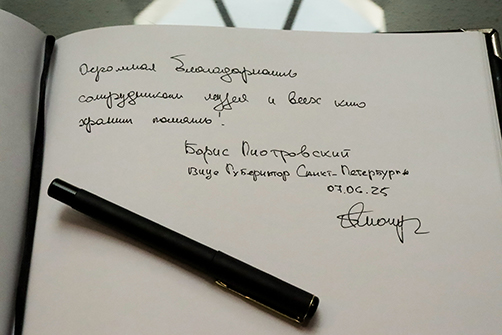 Огромная Благодарность
сотрудникам музея и всех кто
хранит память!
Борис Пиотровский
Вице Губернатор Санкт-Петербурга
07.06.25